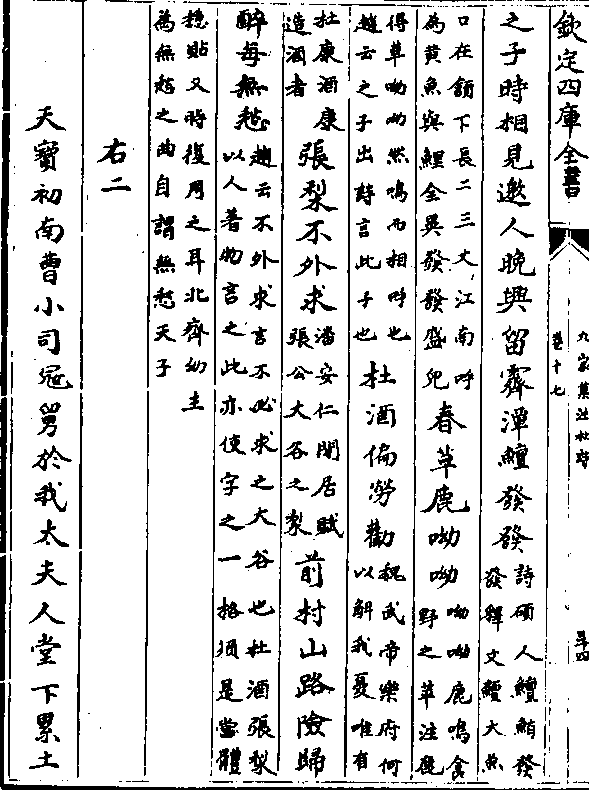 欽定四庫全書
九家集注杜詩
卷十七
之子時相見邀人晚興留霽潭鱣發發
詩碩人鱣鮪發
發釋文鱣大魚
口在頷下長二三丈江南呼
為黄魚與鯉全異發發盛皃
春草鹿呦呦
呦呦鹿鳴食
野之苹注鹿
得草呦呦然鳴而相呼也
趙云之子出詩言此子也
杜酒偏勞勸
魏武帝樂府何
以解我憂唯有
杜康酒康
造酒者
張梨不外求
潘安仁閒居賦
張公大谷之梨
前村山路險歸
醉每無愁
趙云不外求言不必求之大谷也杜酒張梨
以人著物言之此亦使字之一格須是當體
穏貼又時復用之耳北齊幼主
為無愁之曲自謂無愁天子
右二
天寶初南曹小司冦舅於我太夫人堂下累土